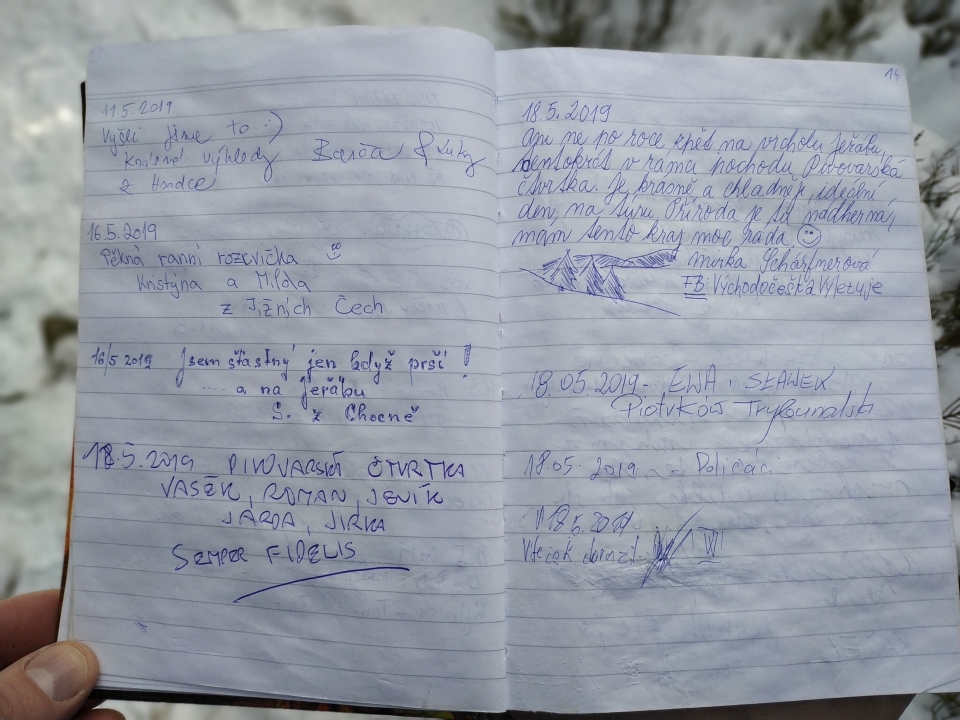 11.5.2019
Vyšli jsme to :)
Krásné výhledy Barča
z Hradce
16.5.2019
Pěkná ranní rozcvička
Kristýna a Míla
z Jižních Čech
16/5 2019 Jsem šťastný jen když prší!
.... a na jeřábu
S. z Chocně
18.5.2019 PIVOVARSKÁ ČTVRTKA
VAŠEK, ROMAN, JENÍK
JARDA, JIRKA
SEMPER FIDELIS
14
18.5.2019
Ani ne po roce zpět na vrcholu Jeřábu,
tentokrát v rámci pochodu Pivovarská
čtvrtka. Je krásně a chladněji, ideální
den na túru. Příroda je tu nádherná,
mám tento kraj moc ráda.
Mirka Schärfnerová
FB: Východočeška Výletuje
18.05.2019 - EWA i SŁAWEK
Piotrków Trybunalski
18.05 2019 - Poličáci
18.5.2019
VI